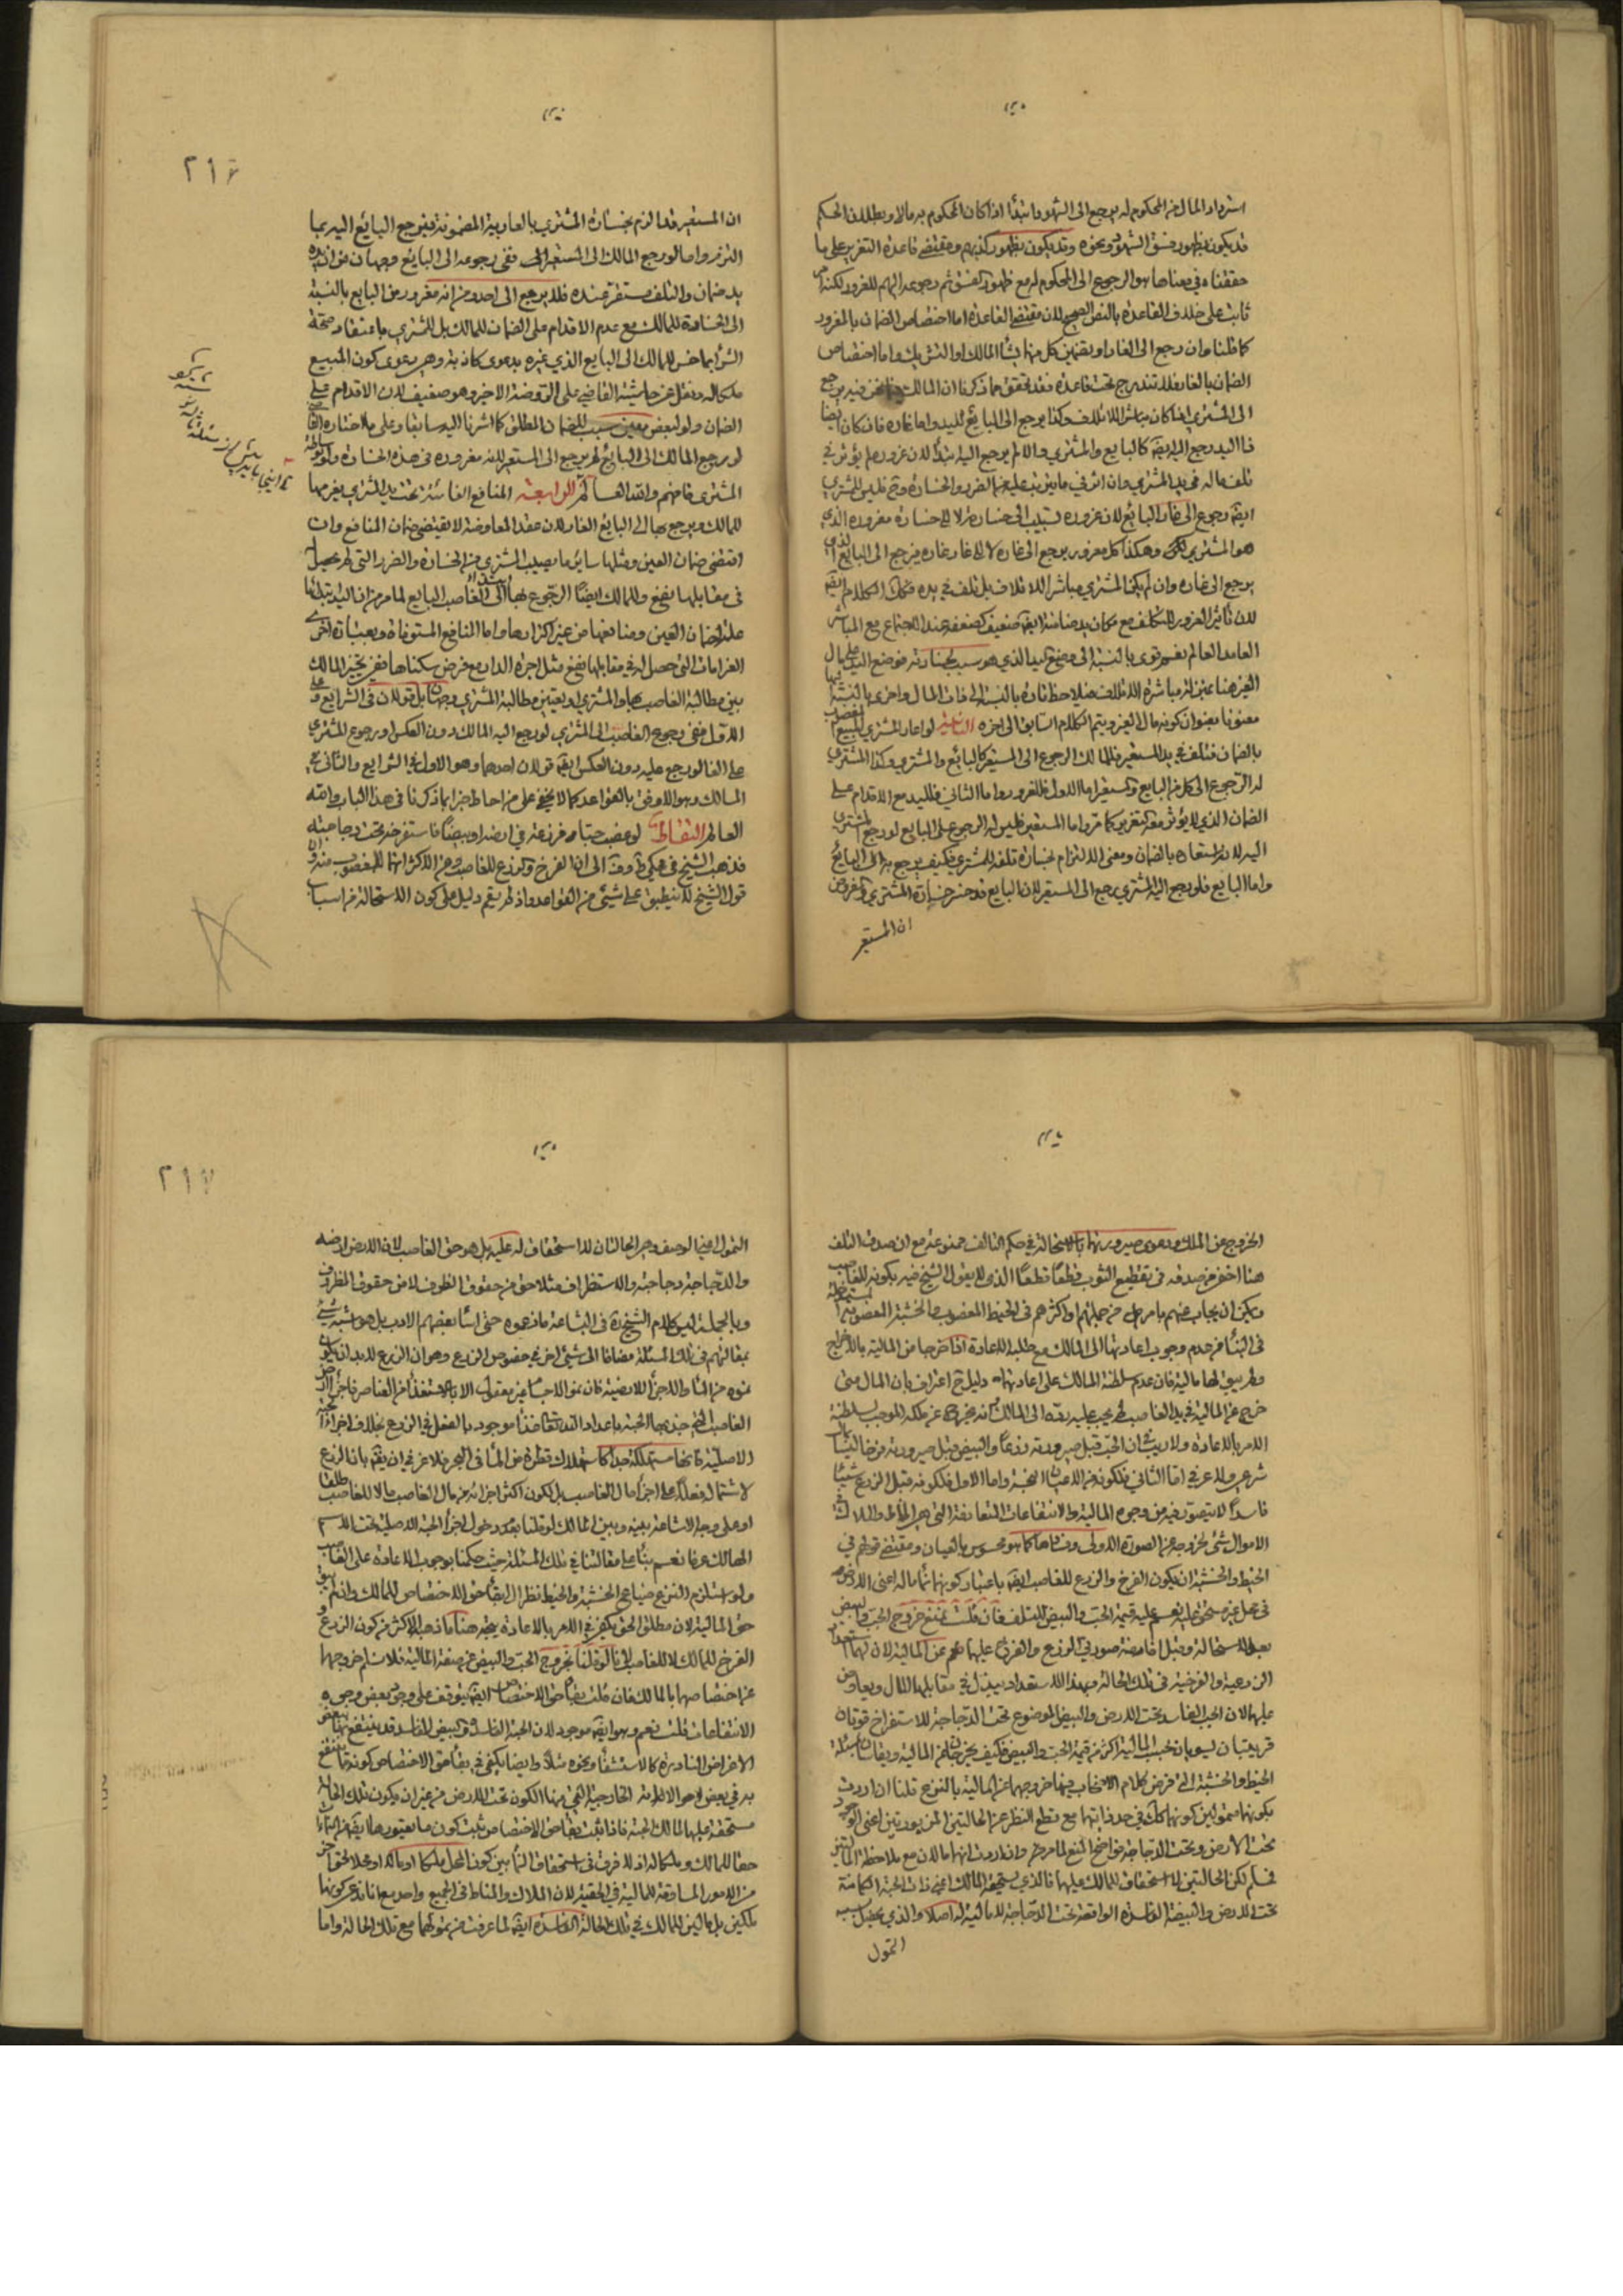 استرداد المال من المحكوم له يرجع الى الشهود ابتدأ اذا كان المحكوم به مالا وبطلان الحكم
قد يكون بظهور فسق الشهود ونحوه وقد يكون بظهور كذبهم ومقتضى قاعدة التغرير على ما
حققناه في معناها هو الرجوع الى المحكوم له مع ظهور الفسق ثم رجوعه اليهم للغرور لكنه
ثابت على خلاف القاعدة بالنص الصحيح لان مقتضى القاعدة اما اختصاص الضمان بالمغرور
كما قلنا وان رجع الى الغار او تضمين كل منهما يشأ المالك او التشريك واما اختصاص
الضمان بالغار فلا تندرج تحت قاعدة فقد تحقق مما ذكرنا ان المالك فيما نحن فيه يرجع
الى المشتري اذا كان مباشرا للاتلاف وكذا يرجع الى البايع لليد واما غاره فان كان ايضا
ذا اليد رجع اليه ايضا كالبايع والمشتري والا لم يرجع اليه ابتدأ لان غروره لم يؤثر في
تلف ماله في يد المشتري وان اثر في ما يترتب عليه من الضرر والخسارة وح فليس للمشتري
ايضا رجوع الى غار البايع لان غروره تسبيب الى خسارته لا الى خسارة مغروره الذي
هو المشتري وهكذا كل مغرور يرجع الى غاره لا الى غار غاره فيرجع الى البايع الذي
يرجع الى غاره وان لم يكن المشتري مباشرا للاتلاف بل تلف في يده فكك الكلام ايضا
لان تأثير الغرور للتلف مع ضمان يد ضامنة ايضا ضعيف كضعفه عند الاجتماع مع المباشر
العامد العالم نعم قوى بالنسبة الى وضع اليد الذي هو سبب لخسارته فوضع اليد على مال
الغير هنا عين له مباشرة الاتلاف هنا لاحظناه بالنسبة الى ذات المال واخرى بالنسبة
معنونا بعنوان كونه مال الغير ويتم الكلام السابق الى اخره الثامنة لو اعار المشتري المبيع المغصوب
بالضمان فتلف في يد المستعير فللمالك الرجوع الى المستعير كالبايع والمشتري وكذا المشتري
له الرجوع الى كل من البايع والمستعير اما الاول فللغرور واما الثاني فلليد مع الاقدام على
الضمان الذي لا يؤثر معه التغرير كما مر واما المستعير فليس له الرجوع على البايع لو رجع المشتري
اليه لانه استعاره بالضمان ومعنى الالتزام بخسارة تلفه للمشتري فكيف يرجع به الى البايع
واما البايع فلو رجع اليه المشتري رجع الى المستعير لان البايع قد خسر خسارة المشتري والمفروض
ان المستعير
٢١٦
ان المستعير قد التزم بخسارة المشتري بالعارية المضمونة فيرجع البايع اليه بما
التزم واما لو رجع المالك الى المستعير ففي رجوعه الى البايع وجهان من ان يده
يد ضمان والتلف مستقر عنده فلا يرجع الى احد ومن انه مغرور من البايع بالنسبة
الى الخسارة للمالك مع عدم الاقدام على الضمان للمالك بل للمشتري باعتقاد صحة
الشرأ بما خسر للمالك الى البايع الذي غره بدعوى كاذبة وهي دعوى كون المبيع
ملكا له ونقل عن حاشية القاضي على الروضة الاخير وهو ضعيف لان الاقدام على
الضمان ولو لبعض معين سبب للضمان المطلق كما اشرنا اليه سابقا وعلى ما اختاره القاضي
لو رجع المالك الى البايع لم يرجع الى المستعير لانه مغروره في هذه الخسارة ولو بواسطة
المشتري فافهم والله العالم الرابعة المنافع الفائتة تحت يد المشتري يغرمها
للمالك ويرجع بها الى البايع الغار لان عقد المعاوضة لا يقتضي ضمان المنافع وان
اقتضى ضمان العين ومثلها سائر ما يصيب المشتري من الخسارة والضرر التي لم يحصل
في مقابلها نفع وللمالك ايضا الرجوع بها ابتدأ الى الغاصب البايع لما مر من ان اليد بنفسها
علة لضمان العين ومنافعها من غير اكثارها واما المنافع المستوفاة وبعبارة اخرى
الغرامات التي حصل له في مقابلها نفع مثل اجرة الدار مع فرض سكناها ففي تخير المالك
بين مطالبة الغاصب بها والمشتري او تعين مطالبة المشتري وجهان بل قولان في الشرايع وعلى
الاول ففي رجوع الغاصب الى المشتري لو رجع اليه المالك دون العكس او رجوع المشتري
على الغار لو رجع عليه دون العكس ايضا قولان احدهما وهو الاول في الشرايع والثاني في
المسالك وهو الاوفق بالقواعد كما لا يخفى على من احاط خبرا بما ذكرنا في هذا الباب والله
العالم التقاط لو غصب حبا فزرعه في ارضه او بيضا فاستفرخه تحت دجاجته
فذهب الشيخ في محكي ط وف الى ان الفرخ والزرع للغاصب وعن الاكثر انهما للمغصوب منه وان
قول الشيخ لا ينطبق على شيئ من القواعد واذ لم يقم دليل على كون الاستحالة من اسباب
الخروج عن الملك ودعوى صيرورتهما بالاستحالة في حكم التالف ممنوعة مع ان صدق التلف
هنا اخفى من صدقه في تقطيع الثوب قطعا قطعا الذي لا يقول الشيخ فيه بكونه للغاصب
ويمكن ان يجاب عنهم بما مر من جملتهم او اكثرهم في الخيط المغصوب والخشبة المغصوبة المستدخلة
في البنأ من عدم وجوب اعادتها الى المالك مع طلب الاعادة اذا خرجا من المالية بالاخراج
ولم يبق لها مالية فان عدم سلطنة المالك على اعادتها دليل ح اعتراف بان المال متى
خرج عن المالية في يد الغاصب لم يجب عليه رده الى المالك لانه يخرج عن ملكه الموجب لسلطنة
الامر بالاعادة ولا ريب في ان الحب قبل صيرورته زرعا والبيض قبل صيرورته فرخا ليسا بمال
شرعي ولا عرفي اما الثاني فلكونه من الاعيان النجسة واما الاول فلكونه قبل الزرع شيئا
فاسدا لا يتصور فيه من وجوه المالية والانتفاعات المتعارفة التي هي المناط والملاك في
الاموال شئ لخروجه عن الصورة الاولى وفسادها كما هو محسوس بالعيان ومقتضى قولهم في
الخيط والخشبة ان يكون الفرخ والزرع للغاصب ايضا باعتبار كونهما نمأ ماله اعنى الارض
في عمل غيره مستحق عليه نعم عليه قيمة الحب والبيض للتلف فان قلت نمنع خروج الحب والبيض
بعد الاستحالة وقبل افاضة صورتي الزرع والفرخ عليهما نعم عن المالية لان لهما استعداد
الزرعية والفرخية في تلك الحالة وبهذا الاستعداد يبذل في مقابلهما المال ويعاوض
عليهما لان الحب الفاسد تحت الارض والبيض الموضوع تحت الدجاجة للاستفراخ قوتان
قريبتان ليسوا بان بحسب المالية اكثر من قيمة الحب والبيض فكيف يخرجان عن المالية ويقاسان بمسئلة
الخيط والخشبة التي فرض كلام الاصحاب فيما خروجهما عن المالية بالنزع قلنا ان اردت
بكونهما متمولين كونهما كك في حد ذاتهما مع قطع النظر عن الحالتين المزبورتين اعنى الوجود
تحت الارض وتحت الدجاجة فواضح المنع لما مر وان اردت انهما مالان مع ملاحظة الحالتين
فمسلم لكن الحالتين لا استحقاق للمالك عليهما فالذي يستحقه المالك اعنى ذات الحبة الكامنة
تحت الارض والبيضة الفاسدة الواقعة تحت الدجاجة لا مالية له اصلا والذي يحصل بسببه
التمول
٢١٧
التمول اعنى الوصف وهي الحالتان لا استحقاق له عليه بل هو حق الغاصب لان الارض ارضه
والدجاجة دجاجته والاستظراف مثلا حق من حقوق الظرف لا من حقوق المظروف
وبالجملة ليس كلام الشيخ ره في البشاعة ما زعموه حتى اسأ بعضهم الادب بل هو اشبه شئ
بمقالتهم في تلك المسئلة مضافا الى شئ اخر في خصوص الزرع وهو ان الزرع لابد ان يكون
نموه من المأ والاجزأ الارضية فان نمو الاجسام غير معقول الا بالاستغذأ من العناصر فاجزأ ارض
الغاصب التي جذبها الحبة باعداد القدرة موجود بالفعل في الزرع بخلاف اجزأ الحبة
الاصلية فانها مستهلكة جدا كاستهلاك قطرة من المأ في البحر فلا غرو في ان يقال بان الزرع
لاشتماله فعلا على اجزأ مال الغاصب بل لكون اكثر اجزائه من مال الغاصب مالا للغاصب مطلقا
او على وجه الاشاعة بينه وبين المالك لو قلنا بعدم دخول اجزأ الحبة الاصلية تحت اسم
الهالك عرفا نعم بنأ على مقالتنا في تلك المسئلة حيث حكمنا بوجوب الاعادة على الغاصب
ولو استلزم النزع ضياع الخشبة والخيط نظرا الى بقأ حق الاختصاص للمالك وان لم يبق
حق المالية لان مطلق الحق يكفى في الامر بالاعادة يتجه هنا ما ذهب الاكثر من كون الزرع و
الفرخ للمالك لا للغاصب لانا لو قلنا بخروج الحب والبيض عن صفة المالية فلا نسلم خروجهما
عن اختصاصهما بالمالك فان قلت بقأ حق الاختصاص ايضا يتوقف على وجود بعض وجوه
الانتفاعات قلت نعم وهو ايضا موجود لان الحبة الفاسدة والبيض الفاسد قد ينتفع بهما بعض
الاغراض النادرة كالاستشفأ ونحوه مثلا وايضا يكفى في بقأ حق الاختصاص كونه مما ينتفع
به في بعض الاحوال الخارجية التي منها الكون تحت الارض من غير ان يكون تلك الحالة
مستحقة عليها لمالك الحبة فاذا ثبت بقأ حق الاختصاص ثبت كون ما يعتورها ايضا من النمأات
حقا للمالك وملكا له اذ لا فرق في استحقاق النمأ بين كون المحل ملكا او مالا او محلا لحق اخر
من الامور المساوقة للمالية في الحقيقة لان الملاك والمناط في الجميع واحد مع انا ندعي كونهما
ملكين بل مالين للمالك في تلك الحالة الفاسدة ايضا لما عرفت من تمولهما مع تلك الحالة واما